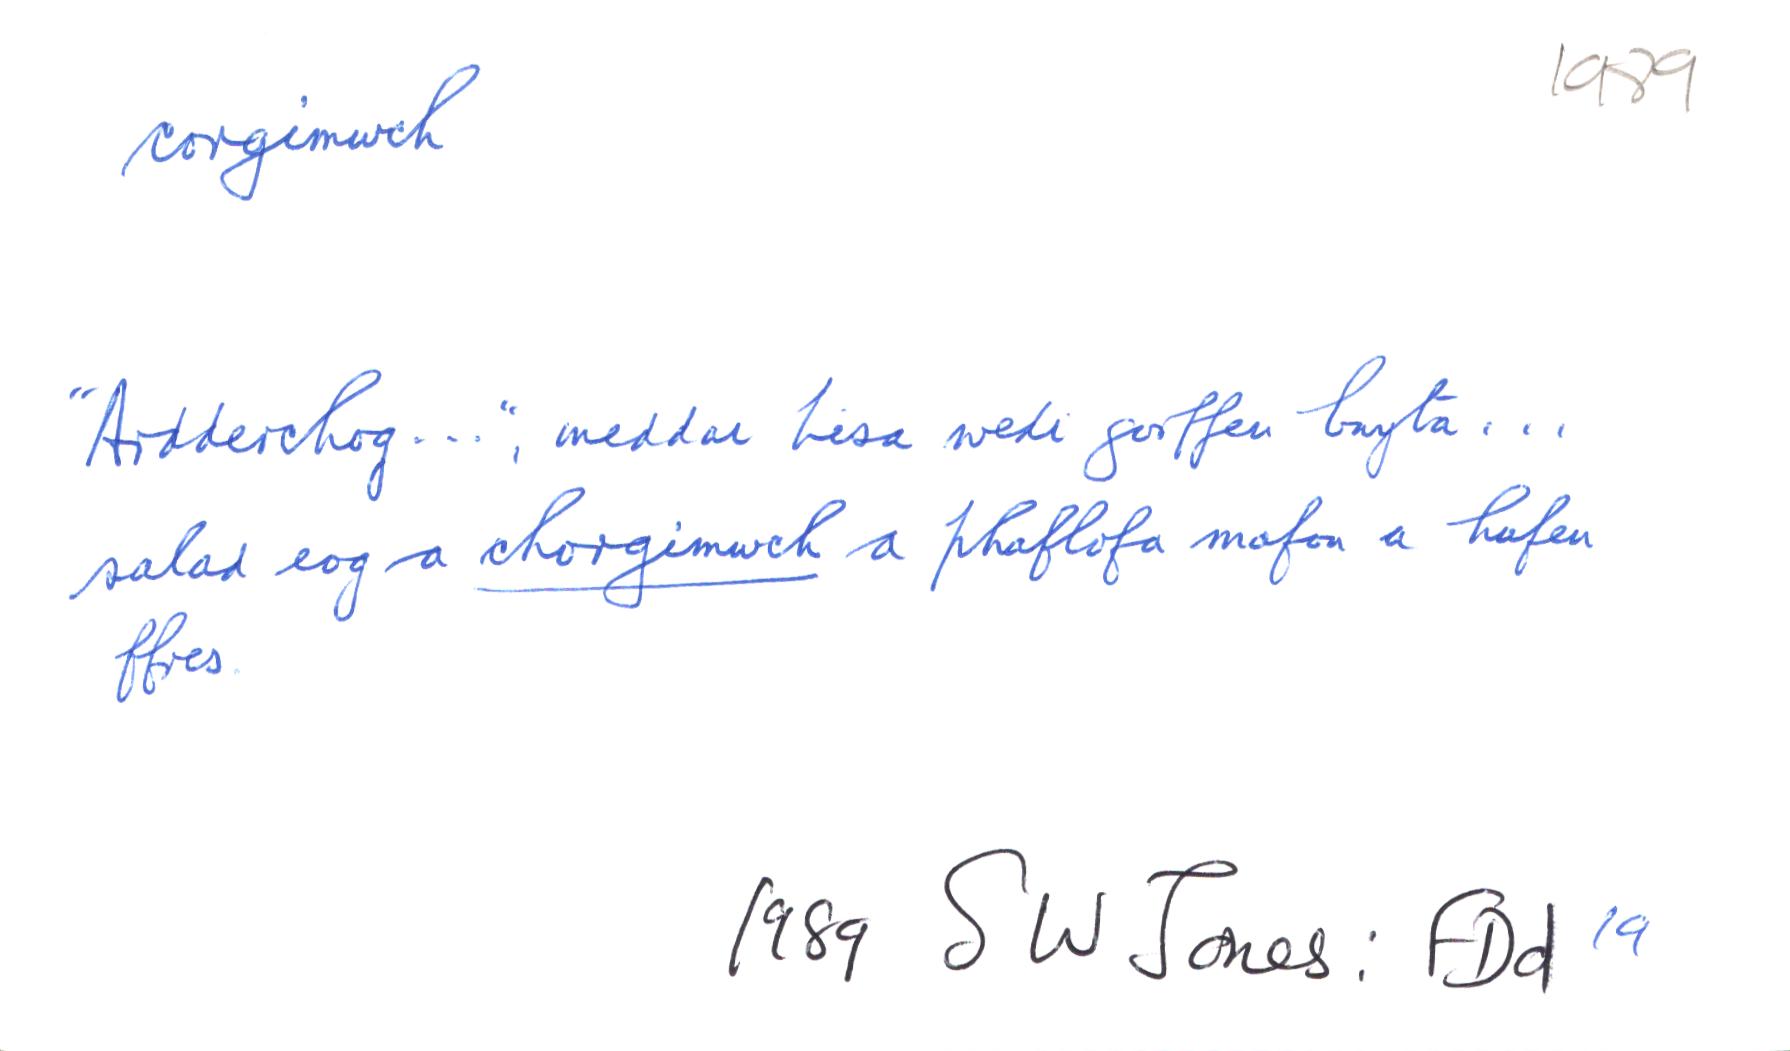 1989
corgimwch
"Ardderchog...", meddai Lisa wedi gorffen bwyta...
salad eog a chorgimwch a phaflofa mafon a hufen
ffres.
1989 S W Jones: FDd 19